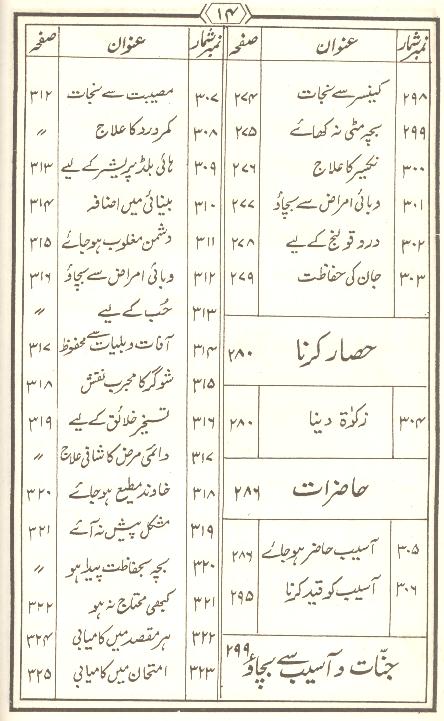 ۱۴
نمبر شمار عنوان صفحہ
۲۹۸ کینسر سے نجات ۲۷۴
۲۹۹ بچہ مٹی نہ کھائے ۲۷۵
۳۰۰ نکسیر کا علاج ۲۷۶
۳۰۱ وبائی امراض سے بچاؤ ۲۷۷
۳۰۲ درد قولنج کے لیے ۲۷۸
۳۰۳ جان کی حفاظت ۲۷۹
حصار کرنا ۲۸۰
۳۰۴ زکوٰۃ دینا ۲۸۰
حاضرات ۲۸۶
۳۰۵ آسیب حاضر ہو جائے ۲۸۶
۳۰۶ آسیب کو قید کرنا ۲۹۵
جنّات و آسیب سے بچاؤ ۲۹۹
نمبر شمار عنوان صفحہ
۳۰۷ مصیبت سے نجات ۳۱۲
۳۰۸ کمر درد کا علاج ״
۳۰۹ ہائی بلڈ پریشر کے لیے ۳۱۳
۳۱۰ بینائی میں اضافہ ۳۱۴
۳۱۱ دشمن مغلوب ہو جائے ۳۱۵
۳۱۲ وبائی امراض سے بچاؤ ۳۱۶
۳۱۳ حُب کے لیے ״
۳۱۴ آفات و بلیات سے محفوظ ۳۱۷
۳۱۵ شوگر کا مجرب نقش ۳۱۸
۳۱۶ تسخیر خلائق کے لیے ۳۱۹
۳۱۷ دائمی مرض کا شافی علاج ״
۳۱۸ خاوند مطیع ہو جائے ۳۲۰
۳۱۹ مشکل پیش نہ آئے ۳۲۱
۳۲۰ بچہ بحفاظت پیدا ہو ״
۳۲۱ کبھی محتاج نہ ہو ۳۲۲
۳۲۲ ہر مقصد میں کامیابی ۳۲۴
۳۲۳ امتحان میں کامیابی ۳۲۵